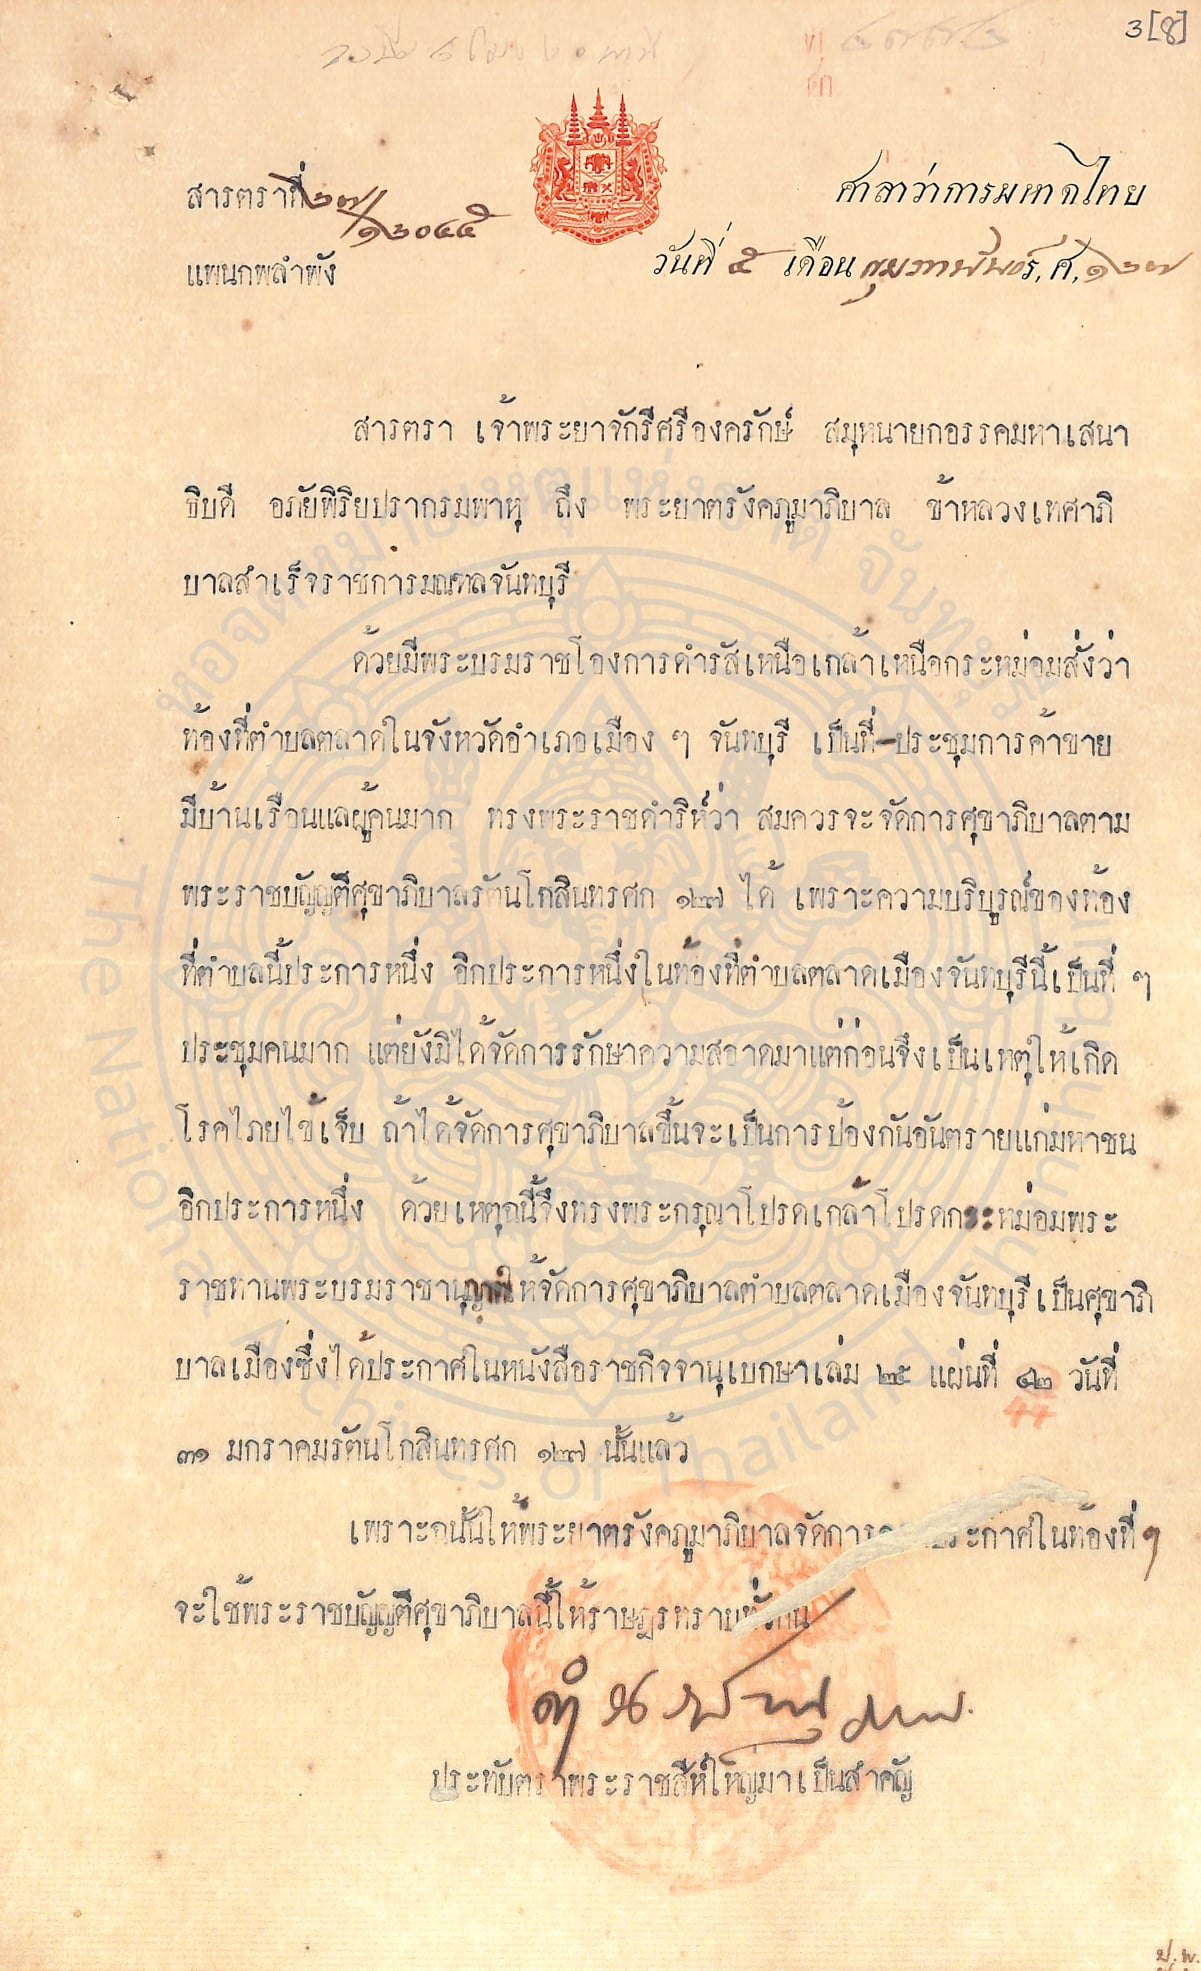 3[8]
สารตราที่ ๒๗/๑๒๐๔๕
ศาลาว่าการมหาดไทย
แพนกพลำพัง
วันที่ ๕ เดือน กุมภาพันธ์ ร, ศ, ๑๒๗
สารตรา เจ้าพระยาจักรีศรีองครักษ์ สมุหนายกอรรคมหาเสนา
ธิบดี อภัยพิริยปรากรมพาหุ ถึง พระยาตรังคภูมาภิบาล ข้าหลวงเทศาภิ
บาลสำเร็จราชการมณฑลจันทบุรี
ด้วยมีพระบรมราชโองการดำรัสเหนือเกล้าเหนือกระหม่อมสั่งว่า
ท้องที่ตำบลตลาดในจังหวัดอำเภอเมือง ๆ จันทบุรี เป็นที่-ประชุมการค้าขาย
มีบ้านเรือนแลผู้คนมาก ทรงพระราชดำริห์ว่า สมควรจะจัดการศุขาภิบาลตาม
พระราชบัญญัติศุขาภิบาลรัตนโกสินทรศก ๑๒๗ ได้ เพราะความบริบูรณ์ของท้อง
ที่ตำบลนี้ประการหนึ่ง อิกประการหนึ่งในท้องที่ตำบลตลาดเมืองจันทบุรีนี้เป็นที่ ๆ
ประชุมคนมาก แต่ยังมิได้จัดการรักษาความสอาดมาแต่ก่อนจึงเป็นเหตุให้เกิด
โรคไภยไข้เจ็บ ถ้าได้จัดการศุขาภิบาลขึ้นจะเป็นการป้องกันอันตรายแก่มหาชน
อิกประการหนึ่ง ด้วยเหตุฉนี้จึงทรงพระกรุณาโปรดเกล้าโปรดกระหม่อมพระ
ราชทานพระบรมราชานุญาตให้จัดการศุขาภิบาลตำบลตลาดเมืองจันทบุรีเป็นศุขาภิ
บาลเมืองซึ่งได้ประกาศในหนังสือราชกิจจานุเบกษาเล่ม ๒๕ แผ่นที่ ๔๒ วันที่
44
๓๑ มกราคมรัตนโกสินทรศก ๑๒๗ นั้นแล้ว
เพราะฉนั้นให้พระยาตรังคภูมาภิบาลจัดการ ประกาศในท้องที่ๆ
จะใช้พระราชบัญญัติศุขาภิบาลนี้ให้ราษฎรทราบทั่วกัน
ประทับตราพระราชสีห์ใหญ่มาเป็นสำคัญ
ป.พ.
หอจดหมายเหตุแห่งชาติ จันทบุรี
The National Archives of Thailand Chanthaburi